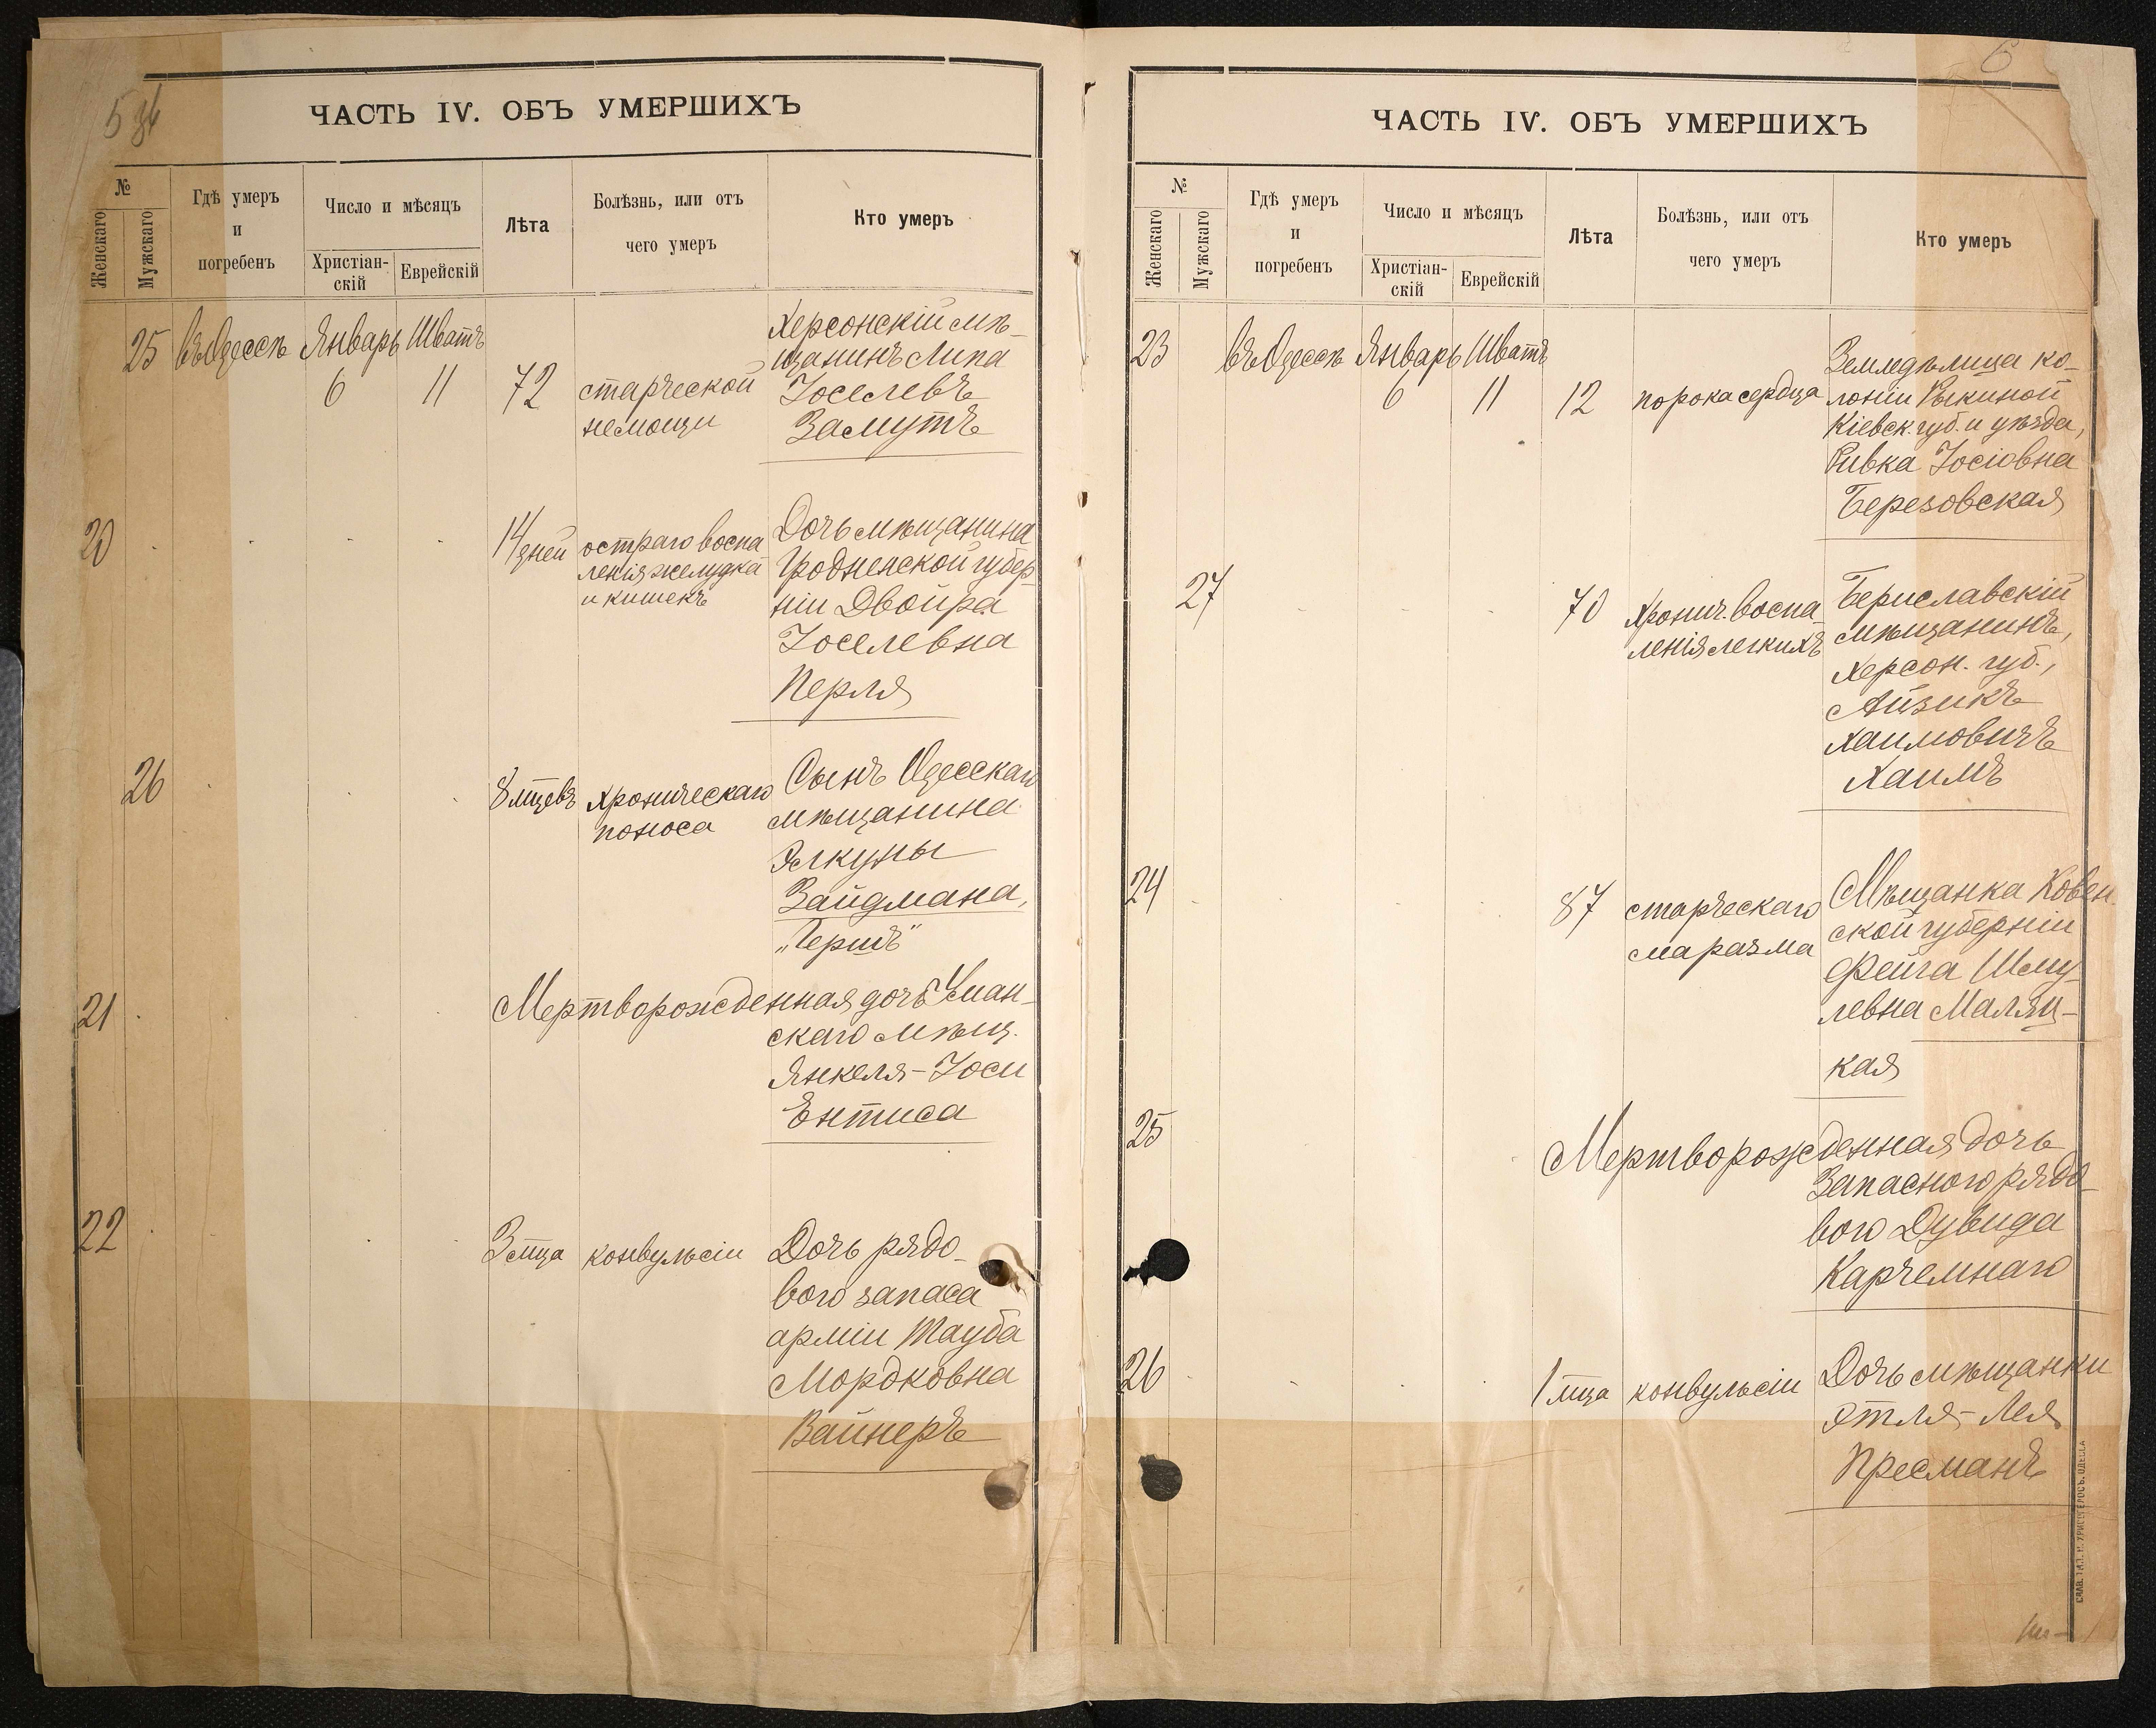 5 об
ЧАСТЬ IV. ОБЪ УМЕРШИХЪ
№
Женскаго
Мужскаго
Гдѣ умеръ
и
погребенъ
Число и мѣсяцъ
Христіан-
скій
Еврейскій
Лѣта
Болѣзнь, или отъ
чего умеръ
Кто умеръ
25 въ Одессѣ Январь Шватъ
6 11 72
старческой
немощи
Херсонскій мѣ-
щанинъ Липа
Іоселевъ
Замутъ
20
14 дней
остраго воспа
ленія желудка
и кишекъ
Дочь мѣщанина
Гродненской губер-
ніи Двойра
Іоселевна
Перля
26
8 мцевъ
хроническаго
поноса
Сынъ Одесскаго
мѣщанина
Элкуны
Зайдмана,
„Гершъ"
21
Мертворожденная дочь Уман-
скаго мѣщ.
Янкеля-Іоси
Ентиса
22
3 мца
конвульсіи
Дочь рядо-
вого запаса
арміи Тауба
Мордковна
Вайнеръ
6
ЧАСТЬ IV. ОБЪ УМЕРШИХЪ
№
Женскаго
Мужскаго
Гдѣ умеръ
и
погребенъ
Число и мѣсяцъ
Христіан-
скій
Еврейскій
Лѣта
Болѣзнь, или отъ
чего умеръ
Кто умеръ
23 въ Одессѣ Январь Шватъ
6 11 12
порока сердца
Земледѣлица ко-
лоніи Рыкиной
Кіевск. губ. и уѣзда,
Ривка Іосіовна
Березовская
27
70
Хронич. воспа
ленія легкихъ
Бериславскій
мѣщанинъ,
Херсон. губ.,
Айзикъ
Хаимовичъ
Хаимъ
24
87
старческаго
маразма
Мѣщанка Ковен.
ской губерніи
Фейга Шму-
левна Маляц-
кая
25
Мертворожденная дочь
Запасного рядо-
вого Дувида
Карчемнаго
26
1 мца
конвульсіи
Дочь мѣщанки
Этля-Лея
Пресманъ